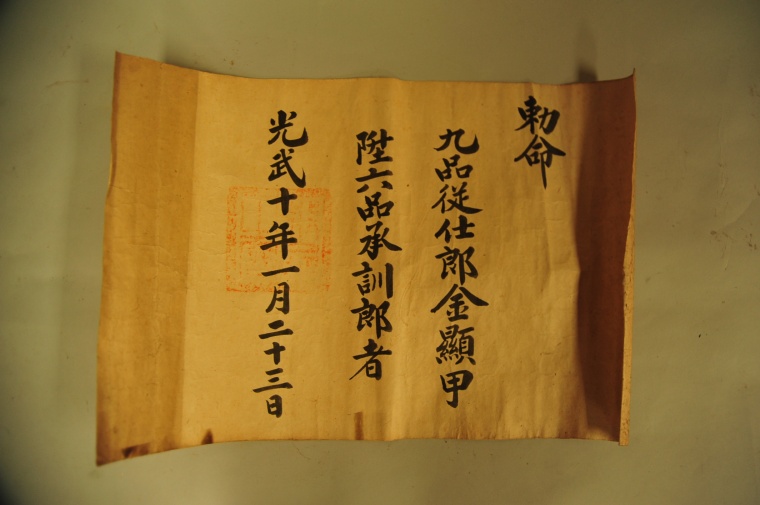 勅命
九品從仕郎金顯甲
陞六品承訓郎者
光武十年一月二十三日